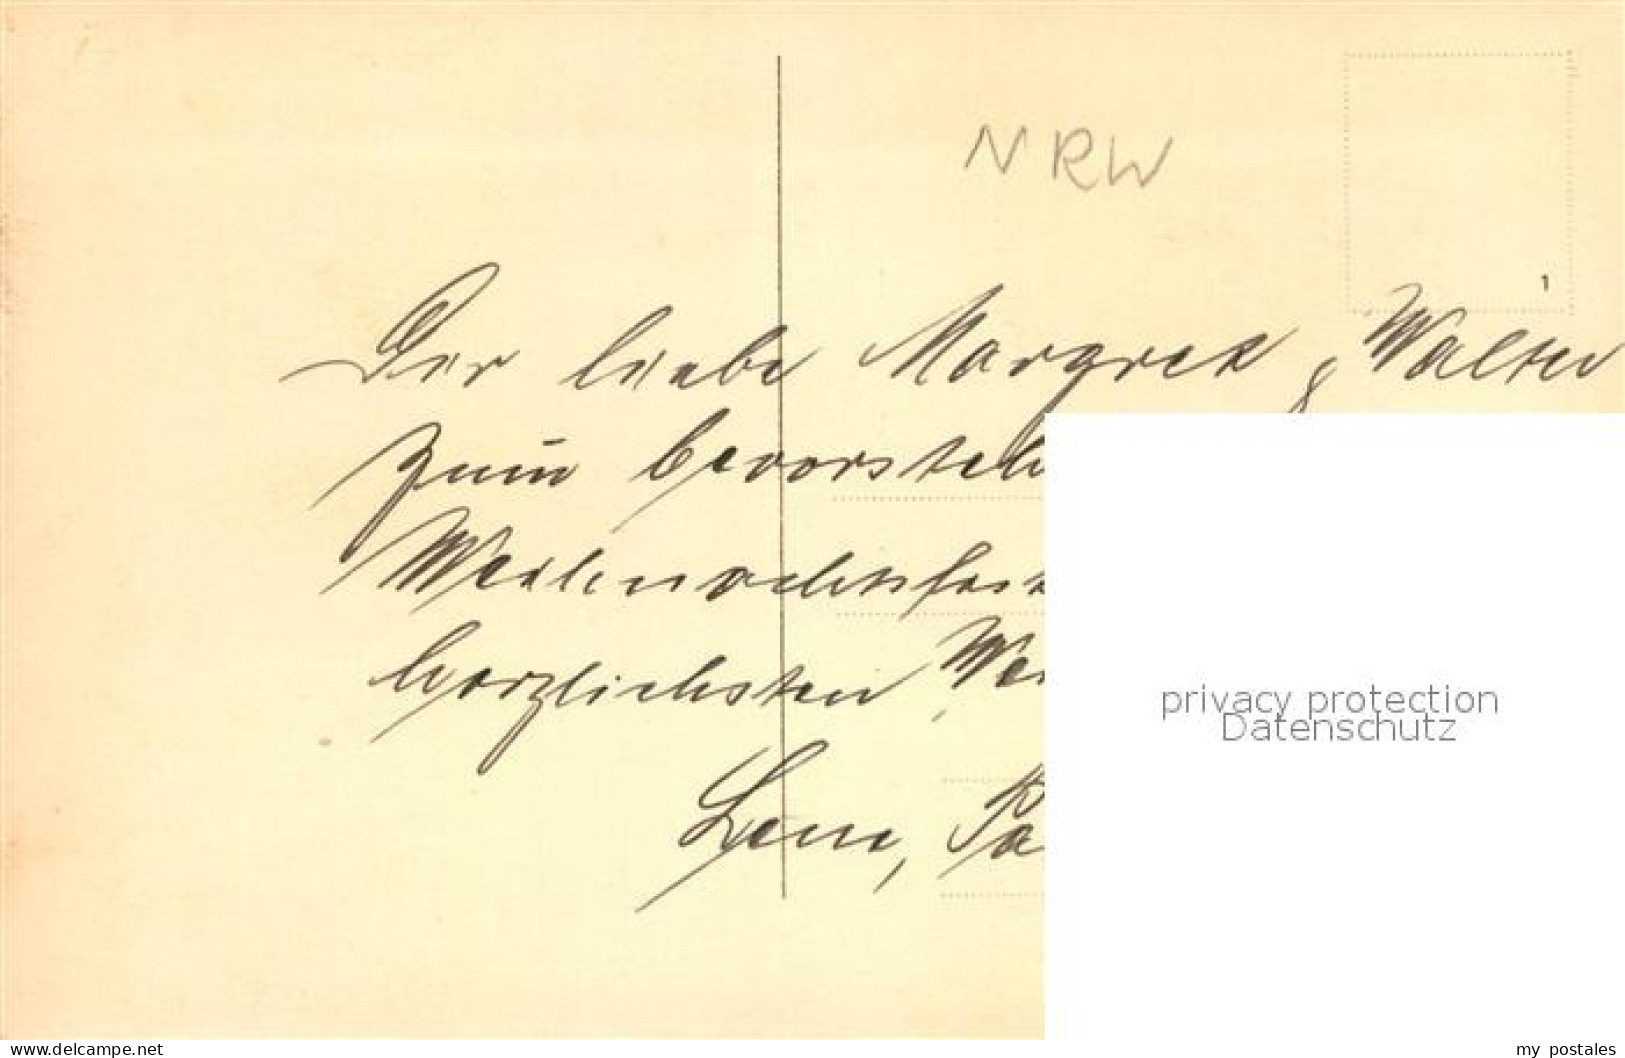 NRW
1
Der liebe Margret & Walter
zum bevorsteh
Weihnachtsfest
herzlichsten
Lene,
privacy protection
Datenschutz
www.delcampe.net
my_postales